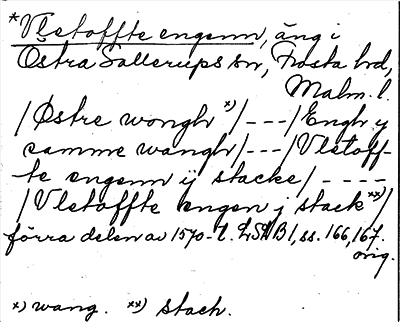 *Vlstoffte engenn, äng i
Östra Sallerups sn, Frosta hd,
Malm. l.
/Østre wongh *)/---/Engh y
samme wangh/---/Vlstoff-
te engenn ÿ stacke/----
/Vlstoffte engen j stack **)/
förra delen av 1570-t. LSÄB 1, ss. 166, 167.
orig.
*) wang. **) stach.